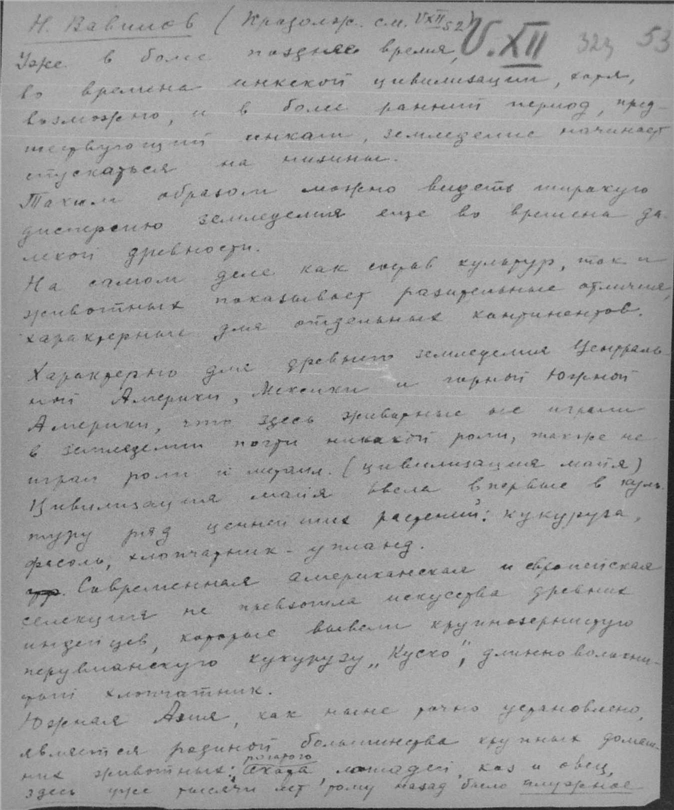 Н. Вавилов (Продолж. см. V XII 52)
V. XII 323 53
Уже в более позднее время,
во времена инкской цивилизации, хотя,
возможно, и в более ранний период, пред-
шествующий инкам, земледелие начинает
спускаться на низины.
Таким образом можно видеть широкую
дисперсию земледелия еще во времена да-
лекой древности.
На самом деле как состав культур, так и
животных показывает разительные отличия,
характерные для отдельных континентов.
Характерно для древнего земледелия Централь-
ной Америки, Мексики и горной Южной
Америки, что здесь животные не играли
в земледелии почти никакой роли, также не
играл роли и металл. (цивилизация майя)
Цивилизация майя ввела впервые в куль-
туру ряд ценнейших растений: кукуруза,
фасоль, хлопчатник-упланд.
Современная американская и европейская
селекция не превзошла искусства древних
индейцев, которые вывели крупнозернистую
перуванскую кукурузу „Куско", длинноволокни-
стый хлопчатник.
Южная Азия, как ныне точно установлено,
является родиной большинства крупных домаш-
них животных: рогатого скота, лошадей, коз и овец,
здесь уже тысячи лет тому назад было плужное